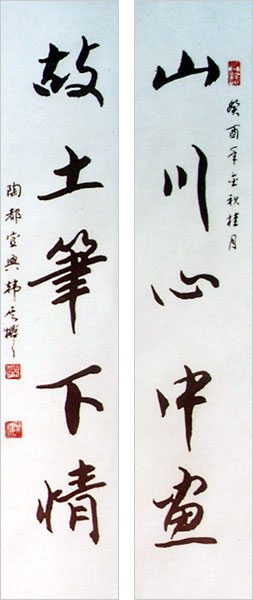 山川心中画
癸酉年金秋桂月
故土筆下情
陶都宜興韩